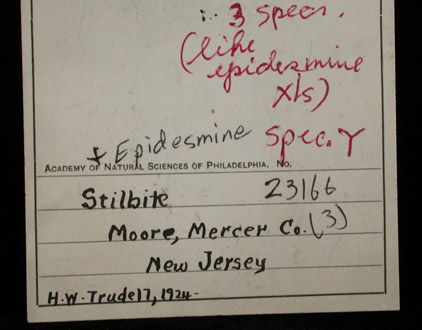 3 specs.
(like
epidesmine
xls)
+ Epidesmine spec. Y
ACADEMY OF NATURAL SCIENCES OF PHILADELPHIA, No.
Stilbite 23166
Moore, Mercer Co. (3)
New Jersey
H.W. Trudell, 1924-